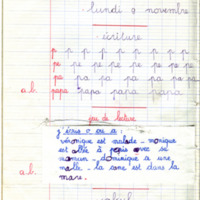 lundi 9 novembre
écriture
p p p p p p p p p
pe pe pe pe pe pe pe
pa pa pa pa pa pa
a.b. papa papa papa papa
jeu de lecture
j'écris o ou a :
véronique est malade - monique
est allée à paris avec sa
maman - dominique a une
malle - la cane est dans la
a.b. mare -